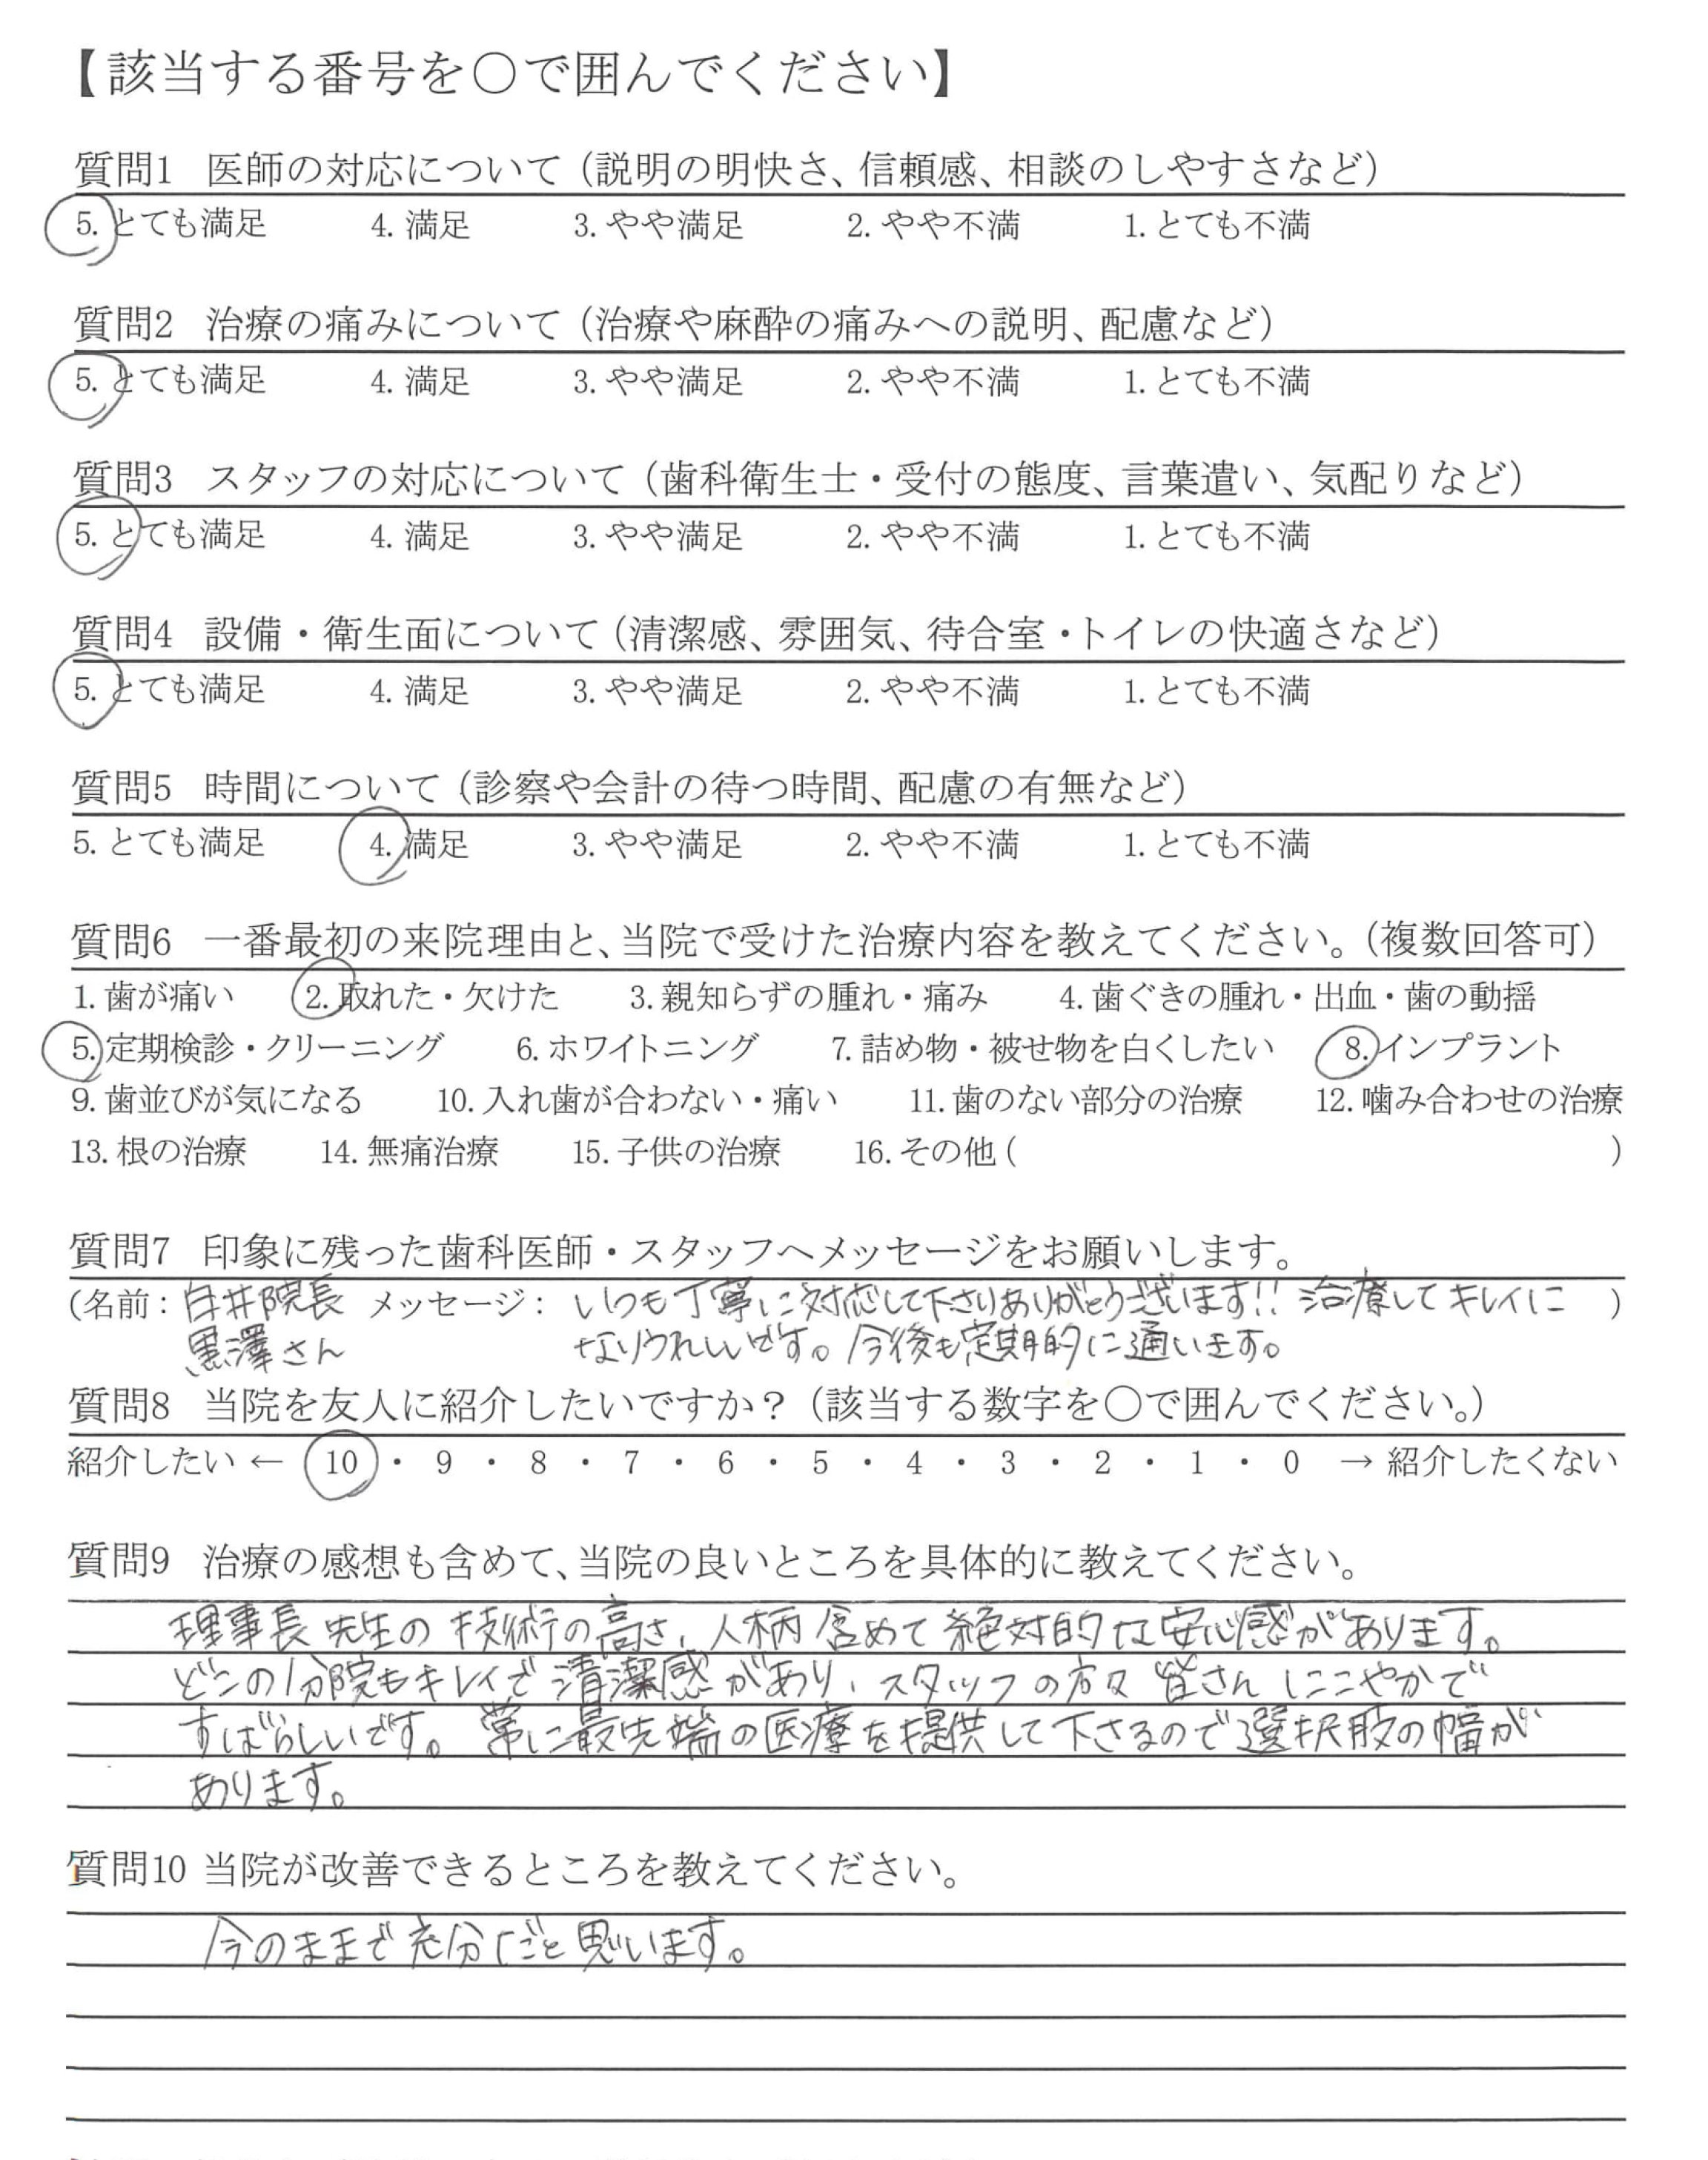 【該当する番号を〇で囲んでください】
質問1 医師の対応について（説明の明快さ、信頼感、相談のしやすさなど）
5. とても満足 4. 満足 3. やや満足 2. やや不満 1. とても不満
質問2 治療の痛みについて（治療や麻酔の痛みへの説明、配慮など）
5. とても満足 4. 満足 3. やや満足 2. やや不満 1. とても不満
質問3 スタッフの対応について（歯科衛生士・受付の態度、言葉遣い、気配りなど）
5. とても満足 4. 満足 3. やや満足 2. やや不満 1. とても不満
質問4 設備・衛生面について（清潔感、雰囲気、待合室・トイレの快適さなど）
5. とても満足 4. 満足 3. やや満足 2. やや不満 1. とても不満
質問5 時間について（診察や会計の待つ時間、配慮の有無など）
5. とても満足 4. 満足 3. やや満足 2. やや不満 1. とても不満
質問6 一番最初の来院理由と、当院で受けた治療内容を教えてください。（複数回答可）
1. 歯が痛い 2. 取れた・欠けた 3. 親知らずの腫れ・痛み 4. 歯ぐきの腫れ・出血・歯の動揺
5. 定期検診・クリーニング 6. ホワイトニング 7. 詰め物・被せ物を白くしたい 8. インプラント
9. 歯並びが気になる 10. 入れ歯が合わない・痛い 11. 歯のない部分の治療 12. 噛み合わせの治療
13. 根の治療 14. 無痛治療 15. 子供の治療 16. その他 ( )
質問7 印象に残った歯科医師・スタッフへメッセージをお願いします。
(名前： 白井院長 メッセージ： いつも丁寧に対応して下さりありがとうございます!! 治療してキレイに )
黒澤さん なりうれしいです。今後も定期的に通います。
質問8 当院を友人に紹介したいですか？（該当する数字を〇で囲んでください。）
紹介したい ← 10 ・ 9 ・ 8 ・ 7 ・ 6 ・ 5 ・ 4 ・ 3 ・ 2 ・ 1 ・ 0 → 紹介したくない
質問9 治療の感想も含めて、当院の良いところを具体的に教えてください。
理事長先生の技術の高さ、人柄含めて絶対的な安心感があります。
どこの分院もキレイで清潔感があり、スタッフの方々皆さんにこやかで
すばらしいです。常に最先端の医療を提供して下さるので選択肢の幅が
あります。
質問10 当院が改善できるところを教えてください。
今のままで充分だと思います。